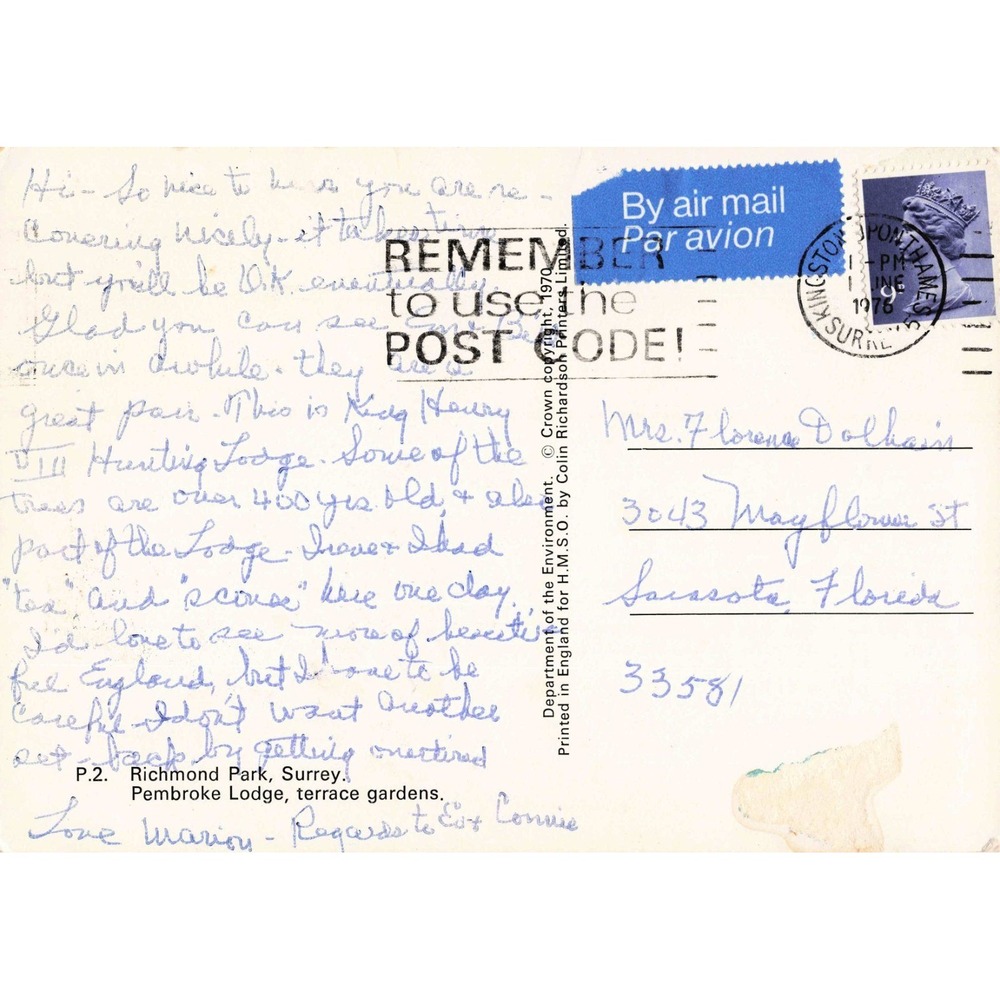 Hi - So nice to hear you are re-
covering nicely - it takes time
but you'll be O.K. eventually.
Glad you can see &
once in awhile - they are a
great pair. This is King Henry
VIII Hunting Lodge. Some of the
trees are over 400 yrs. old, & also
part of the Lodge. Irene & I had
"tea" and "scones" here one day.
I'd love to see more of beauti-
ful England, but I have to be
careful - I don't want another
set-back by getting overtired
P.2. Richmond Park, Surrey.
Pembroke Lodge, terrace gardens.
Love Marion - Regards to Ed & Connie
Department of the Environment. © Crown copyright, 1970
Printed in England for H.M.S.O. by Colin Richardson Printers Limited.
REMEMBER
to use the
POST CODE!
By air mail
Par avion
KINGSTON UPON THAMES
PM
1978
SURREY
9
Mrs. Florence Dolhain
3043 Mayflower St
Sarasota, Florida
33581